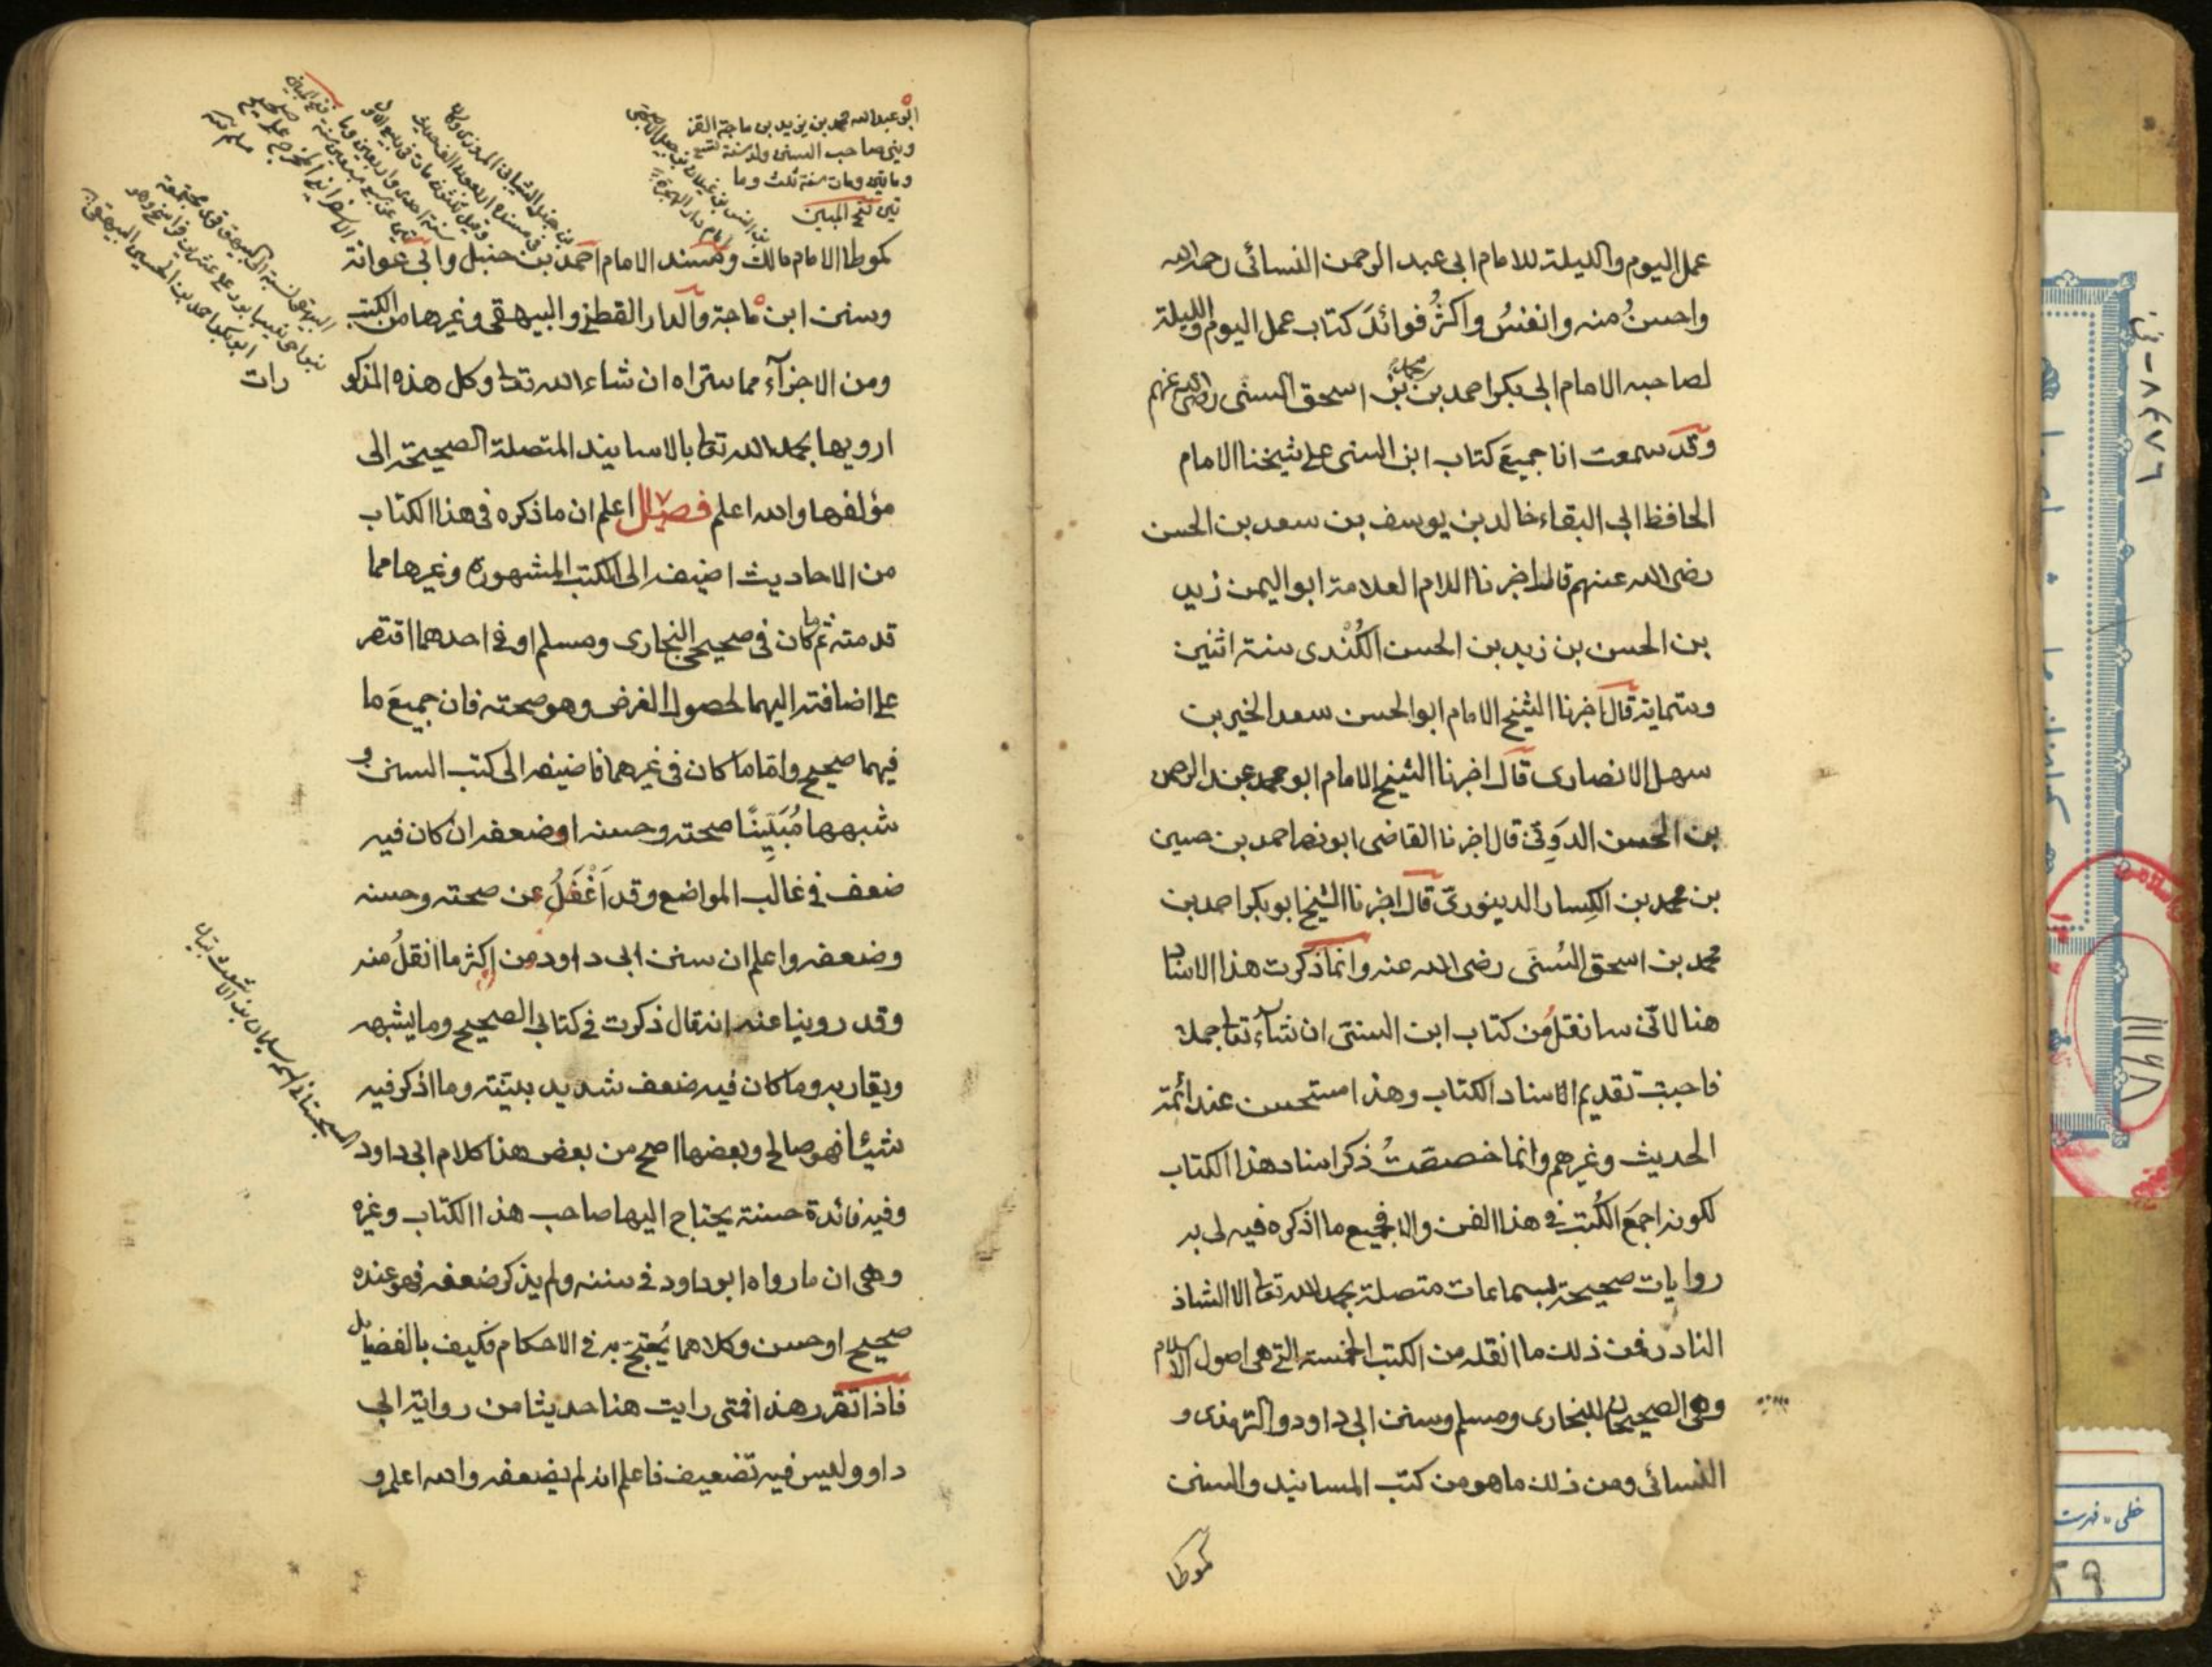 عمل اليوم والليلة للامام ابى عبد الرحمن النسائى رحمه الله
واحسنُ منه وانفسُ واكثرُ فوائدَ كتاب عمل اليوم والليلة
لصاحبه الامام ابى بكر احمد بن محمد بن اسحق السنى رضى الله عنهم
وقد سمعت انا جميعَ كتاب ابن السنى على شيخنا الامام
الحافظ ابى البقاء خالد بن يوسف بن سعد بن الحسن
رضى الله عنهم قال اخبرنا الامام العلامة ابو اليمن زيد
بن الحسن بن زيد بن الحسن الكُنْدى سنة اثنين
وستماية قال اخبرنا الشيخ الامام ابو الحسن سعد الخير بن
سهل الانصارى قال اخبرنا الشيخ الامام ابو محمد عبد الرحمن
بن الحسن الدَوِنىّ قال اخبرنا القاضى ابو نصر احمد بن حسين
بن محمد بن الكِسار الدينورىّ قال اخبرنا الشيخ ابو بكر احمد بن
محمد بن اسحق السُنّى رضى الله عنه وانما ذكرت هذا الاسناد
هنا لانّى سانقلُ من كتاب ابن السنى ان شآء تعا جملا
فاحببت تقديم الاسناد الكتاب وهذا مستحسن عند ائمّة
الحديث وغيرهم وانما خصصتُ ذكر اسناد هذا الكتاب
لكونه اجمعَ الكُتب فى هذا الفن والا فجميع ما اذكره فيه لى به
روايات صحيحة بسماعات متصلة بحمد الله تعا الا الشاذ
النادر فمن ذلك ما انقله من الكتب الخمسة التى هى اصول الاسلام
وهى الصحيحان للبخارى ومسلم وسنن ابى داود والترمذى و
النسائى ومن ذلك ما هو من كتب المسانيد والسنن
كموطا
ابو عبد الله محمد بن يزيد بن ماجة القز
وينى صاحب السنن ولد سنة تسع
وماتين ومات سنة ثلث وما
تين فتح المبين
كموطا الامام مالك ومسند الامام احمد بن حنبل وابى عوانة
وسنن ابن ماجة والدار القطنى والبيهقى وغيرها من الكتب
ومن الاجزآء مما ستراه ان شاء الله تعا وكل هذه المذكو
رات
ارويها بحمد الله تعا بالاسانيد المتصلة الصحيحة الى
مؤلفها والله اعلم فصل اعلم ان ما ذكره فى هذا الكتاب
من الاحاديث اضيفه الى الكتب المشهورة وغيرها مما
قدمته ثم ما كان فى صحيحى البخارى ومسلم او فى احدهما اقتصر
على اضافته اليهما لحصول الغرض وهو صحته فان جميعَ ما
فيهما صحيح واما ما كان فى غيرهما فاضيفه الى كتب السنن و
شبهها مُبَيِّنًا صحته وحسنه او ضعفه ان كان فيه
ضعف فى غالب المواضع وقد اَغْفَلُ عن صحته وحسنه
وضعفه واعلم ان سنن ابى داود من اكثر ما انقلُ منه
وقد روينا عنه انه قال ذكرت فى كتابى الصحيح وما يشبهه
ويقاربه وما كان فيه ضعف شديد بينته وما اذكر فيه
شيئا فهو صالح وبعضها اصح من بعض هذا كلام ابى داود
وفيه فائدة حسنة يحتاج اليها صاحب هذا الكتاب وغيره
وهى ان ما رواه ابو داود فى سننه ولم يذكر ضعفه فهو عنده
صحيح او حسن وكلاهما يُحتج به فى الاحكام فكيف بالفضايل
فاذا تقرر هذا فمتى رايت هنا حديثا من رواية ابى
داود وليس فيه تضعيف فاعلم انه لم يضعفه والله اعلم و
السجستانى اسمه سليمان بن الاشعث
ابو بكر احمد بن الحسين البيهقى
خطى